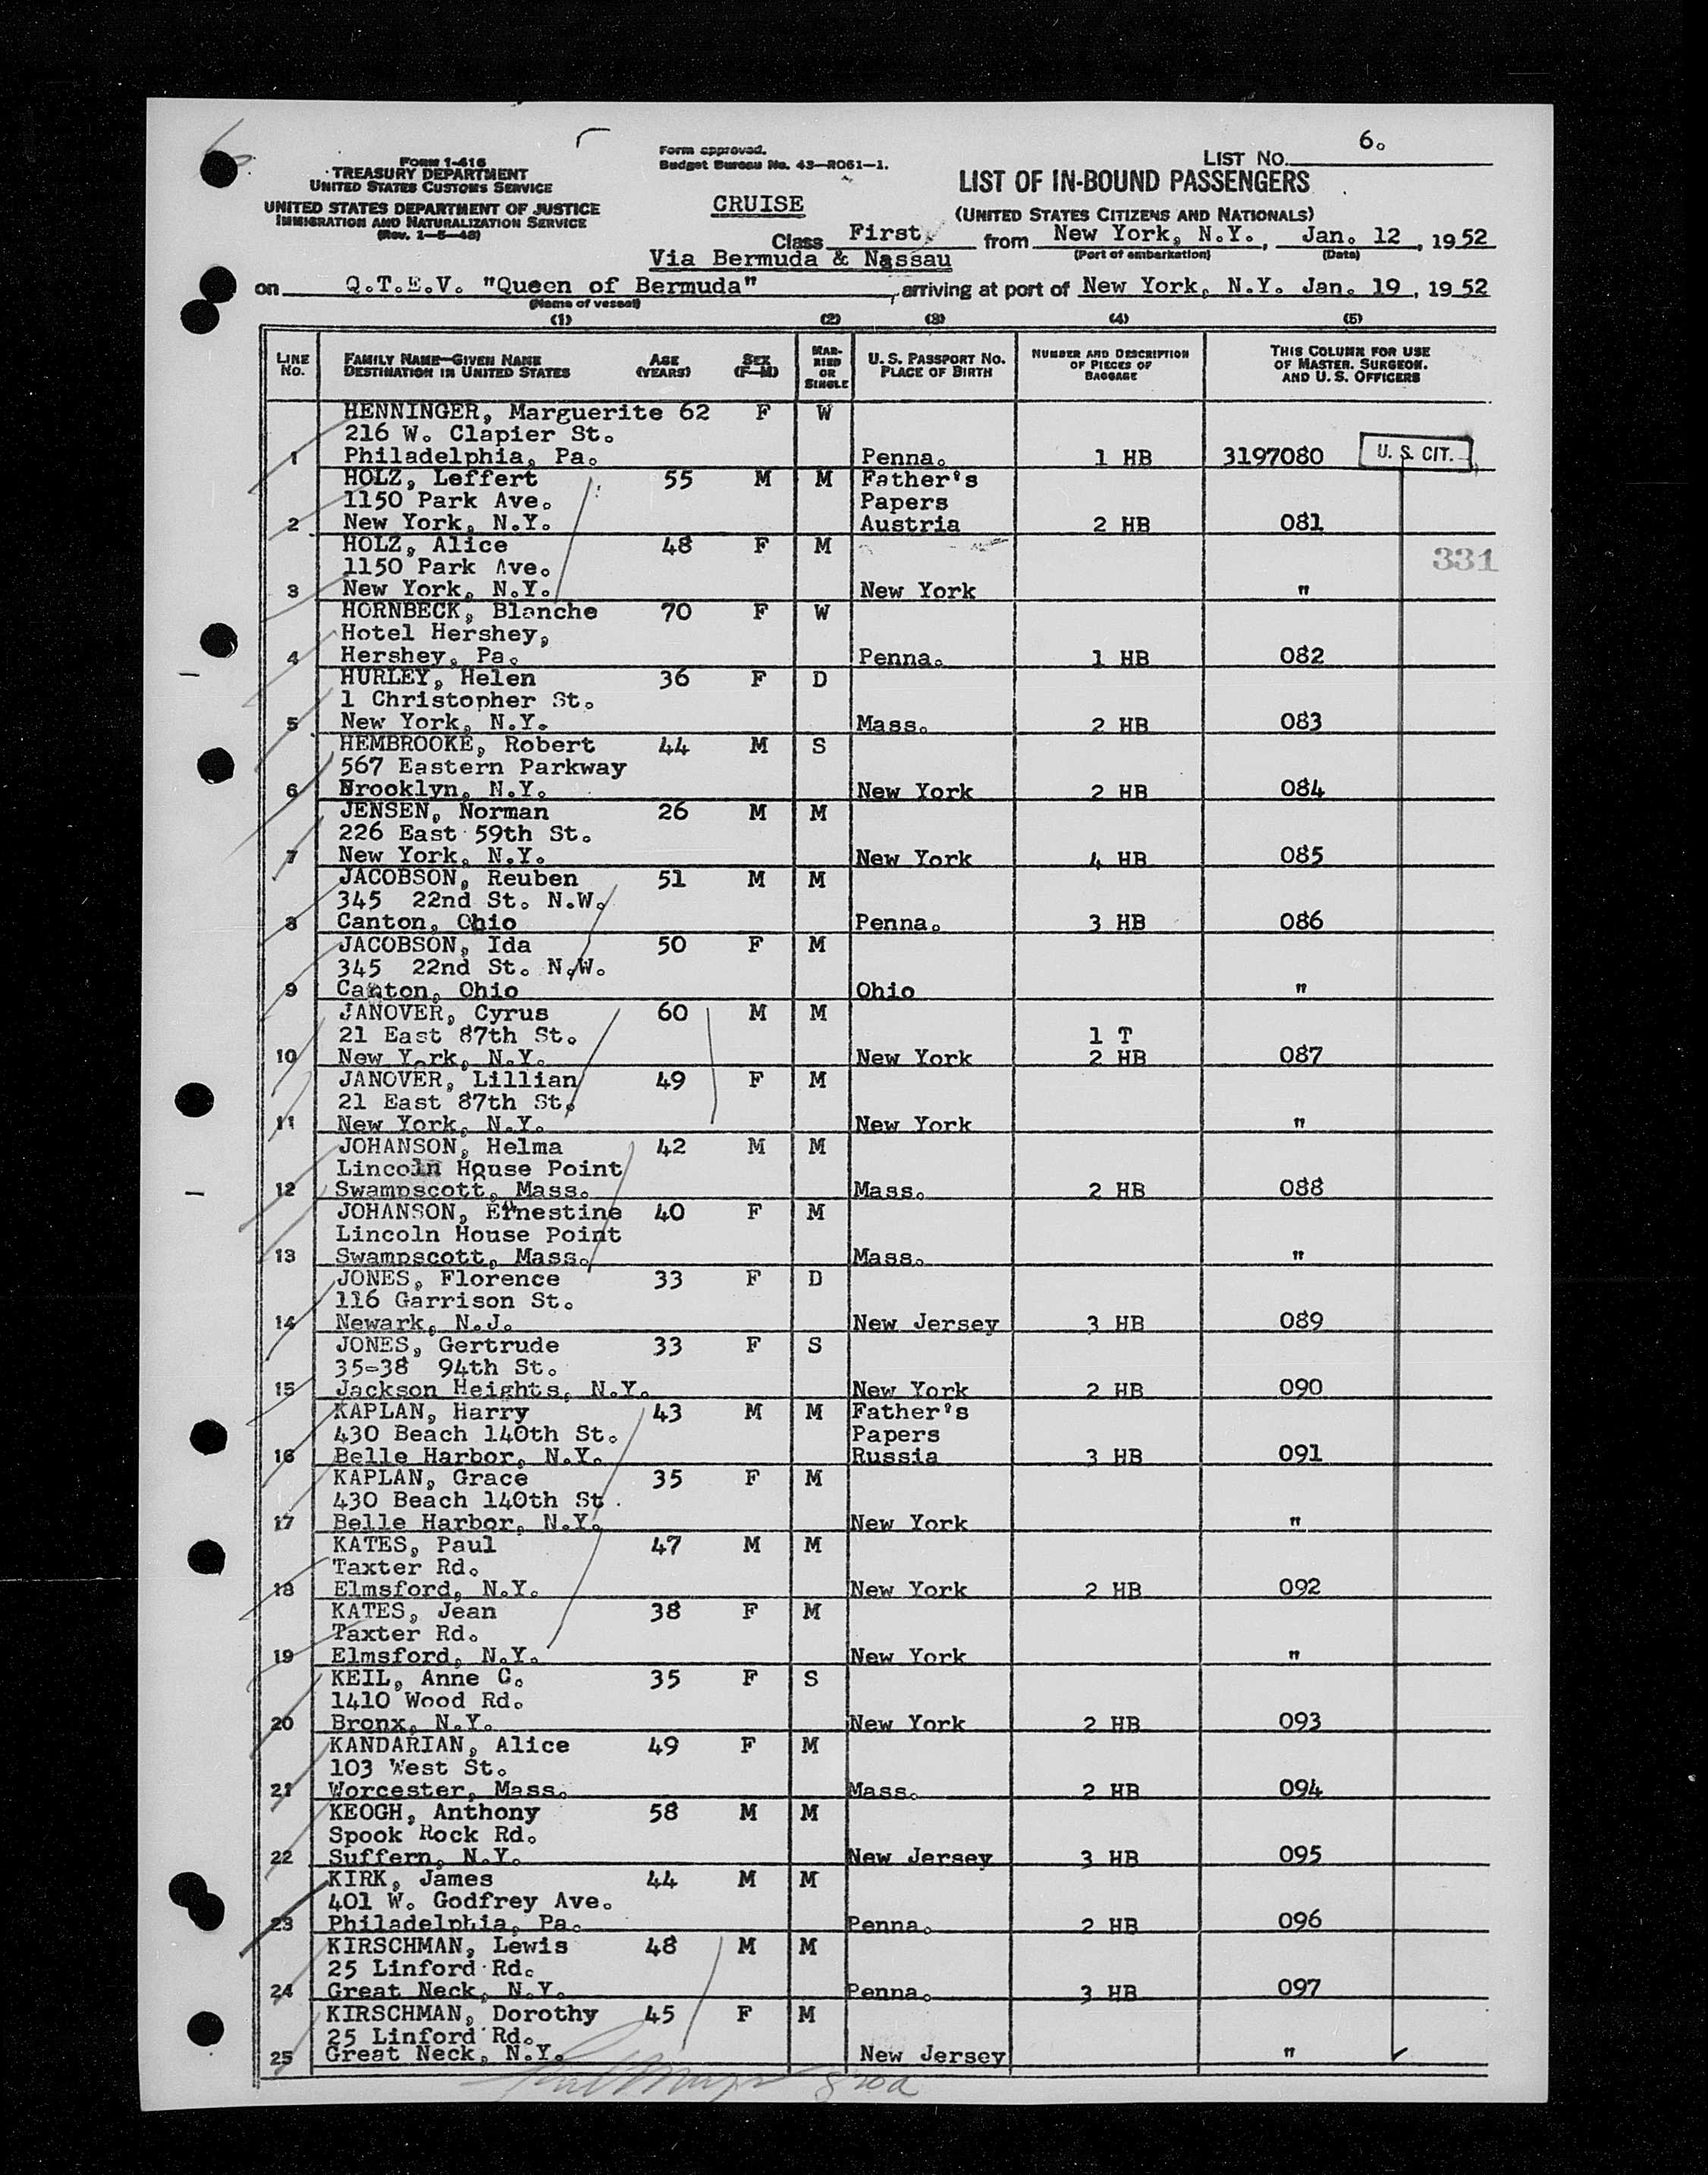 6.
LIST NO.
FORM I-416
TREASURY DEPARTMENT
UNITED STATES CUSTOMS SERVICE
UNITED STATES DEPARTMENT OF JUSTICE
IMMIGRATION AND NATURALIZATION SERVICE
(Rev. 1-5-48)
Form approved.
Budget Bureau No. 43-R061-1.
CRUISE
LIST OF IN-BOUND PASSENGERS
(UNITED STATES CITIZENS AND NATIONALS)
Class First from New York, N.Y., Jan. 12, 1952
(Port of embarkation) (Date)
Via Bermuda & Nassau
on Q.T.E.V. "Queen of Bermuda", arriving at port of New York, N.Y. Jan. 19, 1952
(Name of vessel)
(1) (2) (3) (4) (5)
LINE NO. FAMILY NAME—GIVEN NAME DESTINATION IN UNITED STATES AGE (YEARS) SEX (F—M) MARRIED OR SINGLE U. S. PASSPORT NO. PLACE OF BIRTH NUMBER AND DESCRIPTION OF PIECES OF BAGGAGE THIS COLUMN FOR USE OF MASTER, SURGEON, AND U. S. OFFICERS
HENNINGER, Marguerite 62 F W
216 W. Clapier St.
1 Philadelphia, Pa. Penna. 1 HB 3197080 U. S. CIT.
HOLZ, Leffert 55 M M Father's
1150 Park Ave. Papers
2 New York, N.Y. Austria 2 HB 081
HOLZ, Alice 48 F M
1150 Park Ave. 331
3 New York, N.Y. New York "
HORNBECK, Blanche 70 F W
Hotel Hershey,
4 Hershey, Pa. Penna. 1 HB 082
HURLEY, Helen 36 F D
1 Christopher St.
5 New York, N.Y. Mass. 2 HB 083
HEMBROOKE, Robert 44 M S
567 Eastern Parkway
6 Brooklyn, N.Y. New York 2 HB 084
JENSEN, Norman 26 M M
226 East 59th St.
7 New York, N.Y. New York 4 HB 085
JACOBSON, Reuben 51 M M
345 22nd St. N.W.
8 Canton, Ohio Penna. 3 HB 086
JACOBSON, Ida 50 F M
345 22nd St. N.W.
9 Canton, Ohio Ohio "
JANOVER, Cyrus 60 M M
21 East 87th St. 1 T
10 New York, N.Y. New York 2 HB 087
JANOVER, Lillian 49 F M
21 East 87th St.
11 New York, N.Y. New York "
JOHANSON, Helma 42 M M
Lincoln House Point
12 Swampscott, Mass. Mass. 2 HB 088
JOHANSON, Ernestine 40 F M
Lincoln House Point
13 Swampscott, Mass. Mass. "
JONES, Florence 33 F D
116 Garrison St.
14 Newark, N.J. New Jersey 3 HB 089
JONES, Gertrude 33 F S
35-38 94th St.
15 Jackson Heights, N.Y. New York 2 HB 090
KAPLAN, Harry 43 M M Father's
430 Beach 140th St. Papers
16 Belle Harbor, N.Y. Russia 3 HB 091
KAPLAN, Grace 35 F M
430 Beach 140th St.
17 Belle Harbor, N.Y. New York "
KATES, Paul 47 M M
Taxter Rd.
18 Elmsford, N.Y. New York 2 HB 092
KATES, Jean 38 F M
Taxter Rd.
19 Elmsford, N.Y. New York "
KEIL, Anne C. 35 F S
1410 Wood Rd.
20 Bronx, N.Y. New York 2 HB 093
KANDARIAN, Alice 49 F M
103 West St.
21 Worcester, Mass. Mass. 2 HB 094
KEOGH, Anthony 58 M M
Spook Rock Rd.
22 Suffern, N.Y. New Jersey 3 HB 095
KIRK, James 44 M M
401 W. Godfrey Ave.
23 Philadelphia, Pa. Penna. 2 HB 096
KIRSCHMAN, Lewis 48 M M
25 Linford Rd.
24 Great Neck, N.Y. Penna. 3 HB 097
KIRSCHMAN, Dorothy 45 F M
25 Linford Rd.
25 Great Neck, N.Y. New Jersey "